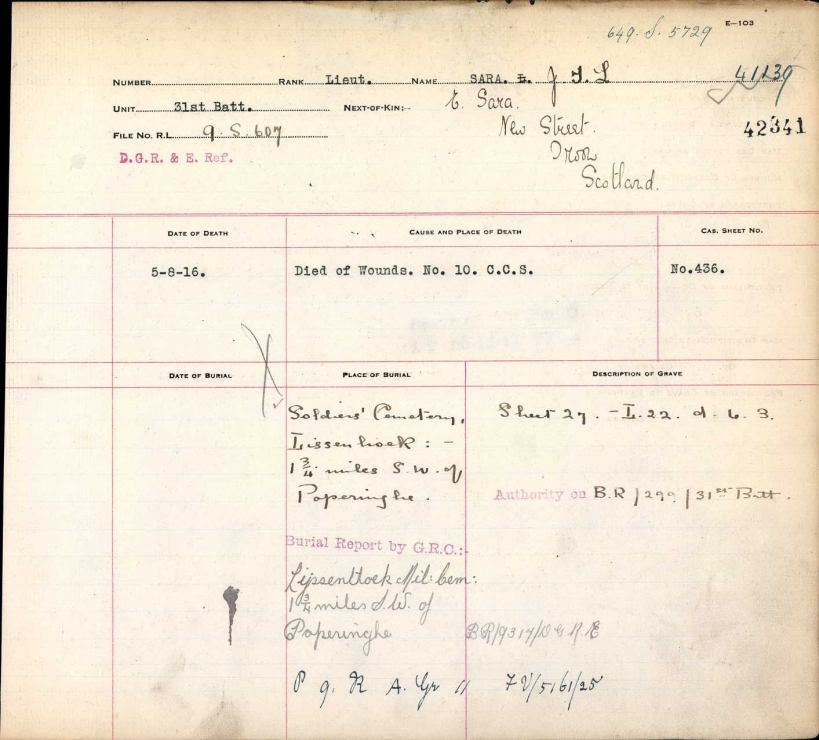 E-103
649. S. 5729
NUMBER RANK Lieut. NAME SARA. L. J T L 41139
UNIT 31st Batt. NEXT-OF-KIN:- E. Sara. 42341
New Street.
FILE NO. R.L. 9. S. 607
Troon
D.G.R. & E. Ref.
Scotland.
DATE OF DEATH CAUSE AND PLACE OF DEATH CAS. SHEET NO.
5-8-16. Died of Wounds. No. 10. C.C.S. No.436.
DATE OF BURIAL PLACE OF BURIAL DESCRIPTION OF GRAVE
Soldiers' Cemetery, Sheet 27. - L. 22. d. 6. 3.
Lissenhock : -
1 3/4 miles S.W. of
Poperinghe. Authority on B.R /299 /31st Batt.
Burial Report by G.R.C.:-
Lijssenthoek Mil: Cem:
1 3/4 miles S.W. of
Poperinghe BR/9317/DGRE
P 9. R A. Gr 11 7V/5161/25